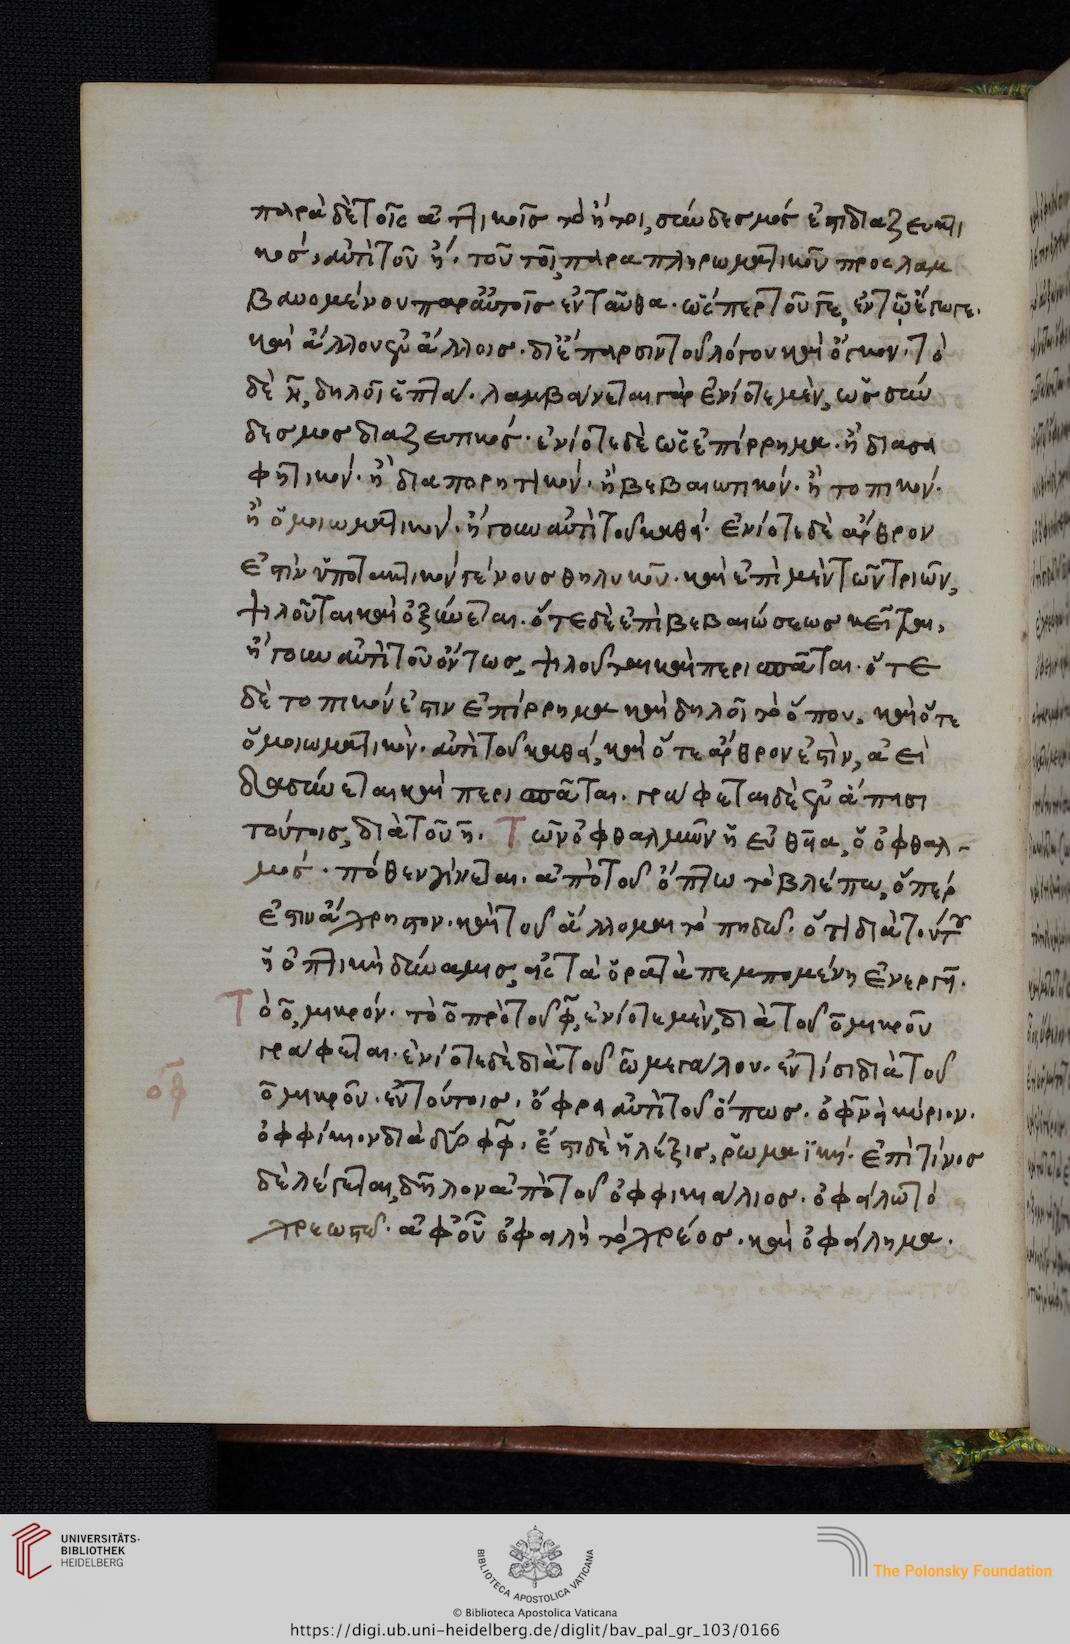 παρὰ δὲ τοῖς ἀττικοῖς τὸ ἤτοι, σύνδεσμος ἐστι διαζευκτι
κος, ἀντὶ τοῦ ἤ. τοῦ τοῖ παραπληρωματικοῦ προσλαμ
βανομένου παρ' αὐτοῖς ἐνταῦθα. ὥσπερ τοῦ γε, ἐν τῷ ἔγωγε.
καὶ ἄλλου ἐν ἄλλοις. δι' ἔπαρσιν τοῦ λόγου καὶ ὄγκον. τὸ
δὲ ῆ, δηλοῖ ἑπτά. λαμβάνεται γὰρ ἐνίοτε μὲν, ὡς σύν
δεσμος διαζευτικός. ἐνίοτε δὲ ὡς ἐπίρρημα. ἢ διασα
φητικόν. ἢ διαπορητικόν. ἢ βεβαιωτικόν. ἢ τοπικόν.
ἢ ὁμοιωματικόν. ἤγουν ἀντὶ τοῦ καθά. ἐνίοτε δὲ ἄρθρον
ἐστὶν ὑποτακτικόν γένους θηλυκοῦ. καὶ ἐπὶ μὲν τῶν τριῶν,
ψιλοῦται καὶ ὀξύνεται. ὅτε δὲ ἐπὶ βεβαιώσεως κεῖται,
ἤγουν ἀντὶ τοῦ ὄντως, ψιλοῦται καὶ περισπᾶται. ὅτε
δὲ τοπικόν ἐστιν ἐπίρρημα καὶ δηλοῖ τὸ ὅπου, καὶ ὅτε
ὁμοιωματικὸν. ἀντὶ τοῦ καθά, καὶ ὅτε ἄρθρον ἐστὶν, ἀεὶ
δασύνεται καὶ περισπᾶται. γράφεται δὲ ἐν ἅπασι
τούτοις, διὰ τοῦ η. Τῶν ὀφθαλμῶν ἡ εὐθεῖα, ὁ ὀφθαλ-
μός. πόθεν γίνεται. ἀπὸ τοῦ ὄπτω τὸ βλέπω, ὅπερ
ἐστιν ἄχρηστον. καὶ τοῦ ἅλλομαι τὸ πηδῶ. ὅτι διὰ τούτου
ἡ ὀπτικὴ δύναμις, εἰς τὰ ὁρατὰ πεμπομένη ἐνεργεῖ.
Τὸ ο, μικρόν. τὸ ο πρὸ τοῦ φ, ἐνίοτε μὲν, διὰ τοῦ ο μικροῦ
γράφεται. ἐνίοτε δὲ διὰ τοῦ ω μεγάλου. ἐν τίσι διὰ τοῦ
ο μικροῦ. ἐν τούτοις. ὄφρα ἀντὶ τοῦ ὅπως. ὀφνὴ κύριον.
οφ
ὀφφίκιον διὰ δύο φφ. ἔστι δὲ ἡ λέξις, ῥωμαϊκή. ἐπὶ τίνος
δὲ λέγεται, δῆλον ἀπὸ τοῦ ὀφφικιάλιος. ὀφείλω τὸ
χρεωστῶ. ἀφ' οὗ ὀφειλὴ τὸ χρέος. καὶ ὀφείλημα.
UNIVERSITÄTS-
BIBLIOTHEK
HEIDELBERG
BIBLIOTECA APOSTOLICA VATICANA
The Polonsky Foundation
© Biblioteca Apostolica Vaticana
https://digi.ub.uni-heidelberg.de/diglit/bav_pal_gr_103/0166